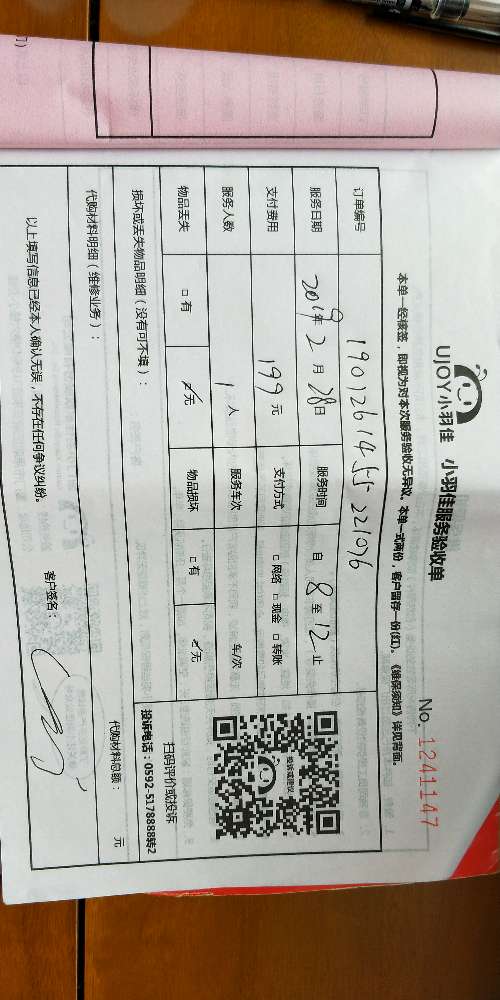 UJOY小羽佳 小羽佳服务验收单
No. 1241147
本单一经核签，即视为对本次服务验收无异议。本单一式两份，客户留存一份(红)。《维保须知》详见背面。
订单编号 1901261455-221076
服务日期 2019年2月28日 服务时间 自8至12止
支付费用 199元 支付方式 □网络 □现金 □转账
服务人数 1人 服务车次 车/次
物品丢失 □有 ☑无 物品损坏 □有 ☑无
投诉或建议
扫码评价或投诉
投诉电话：0592-5178888转2
损坏或丢失物品明细（没有可不填）：
代购材料明细（维修业务）：
代购材料总额： 元
以上填写信息已经本人确认无误，不存在任何争议纠纷。
客户签名：